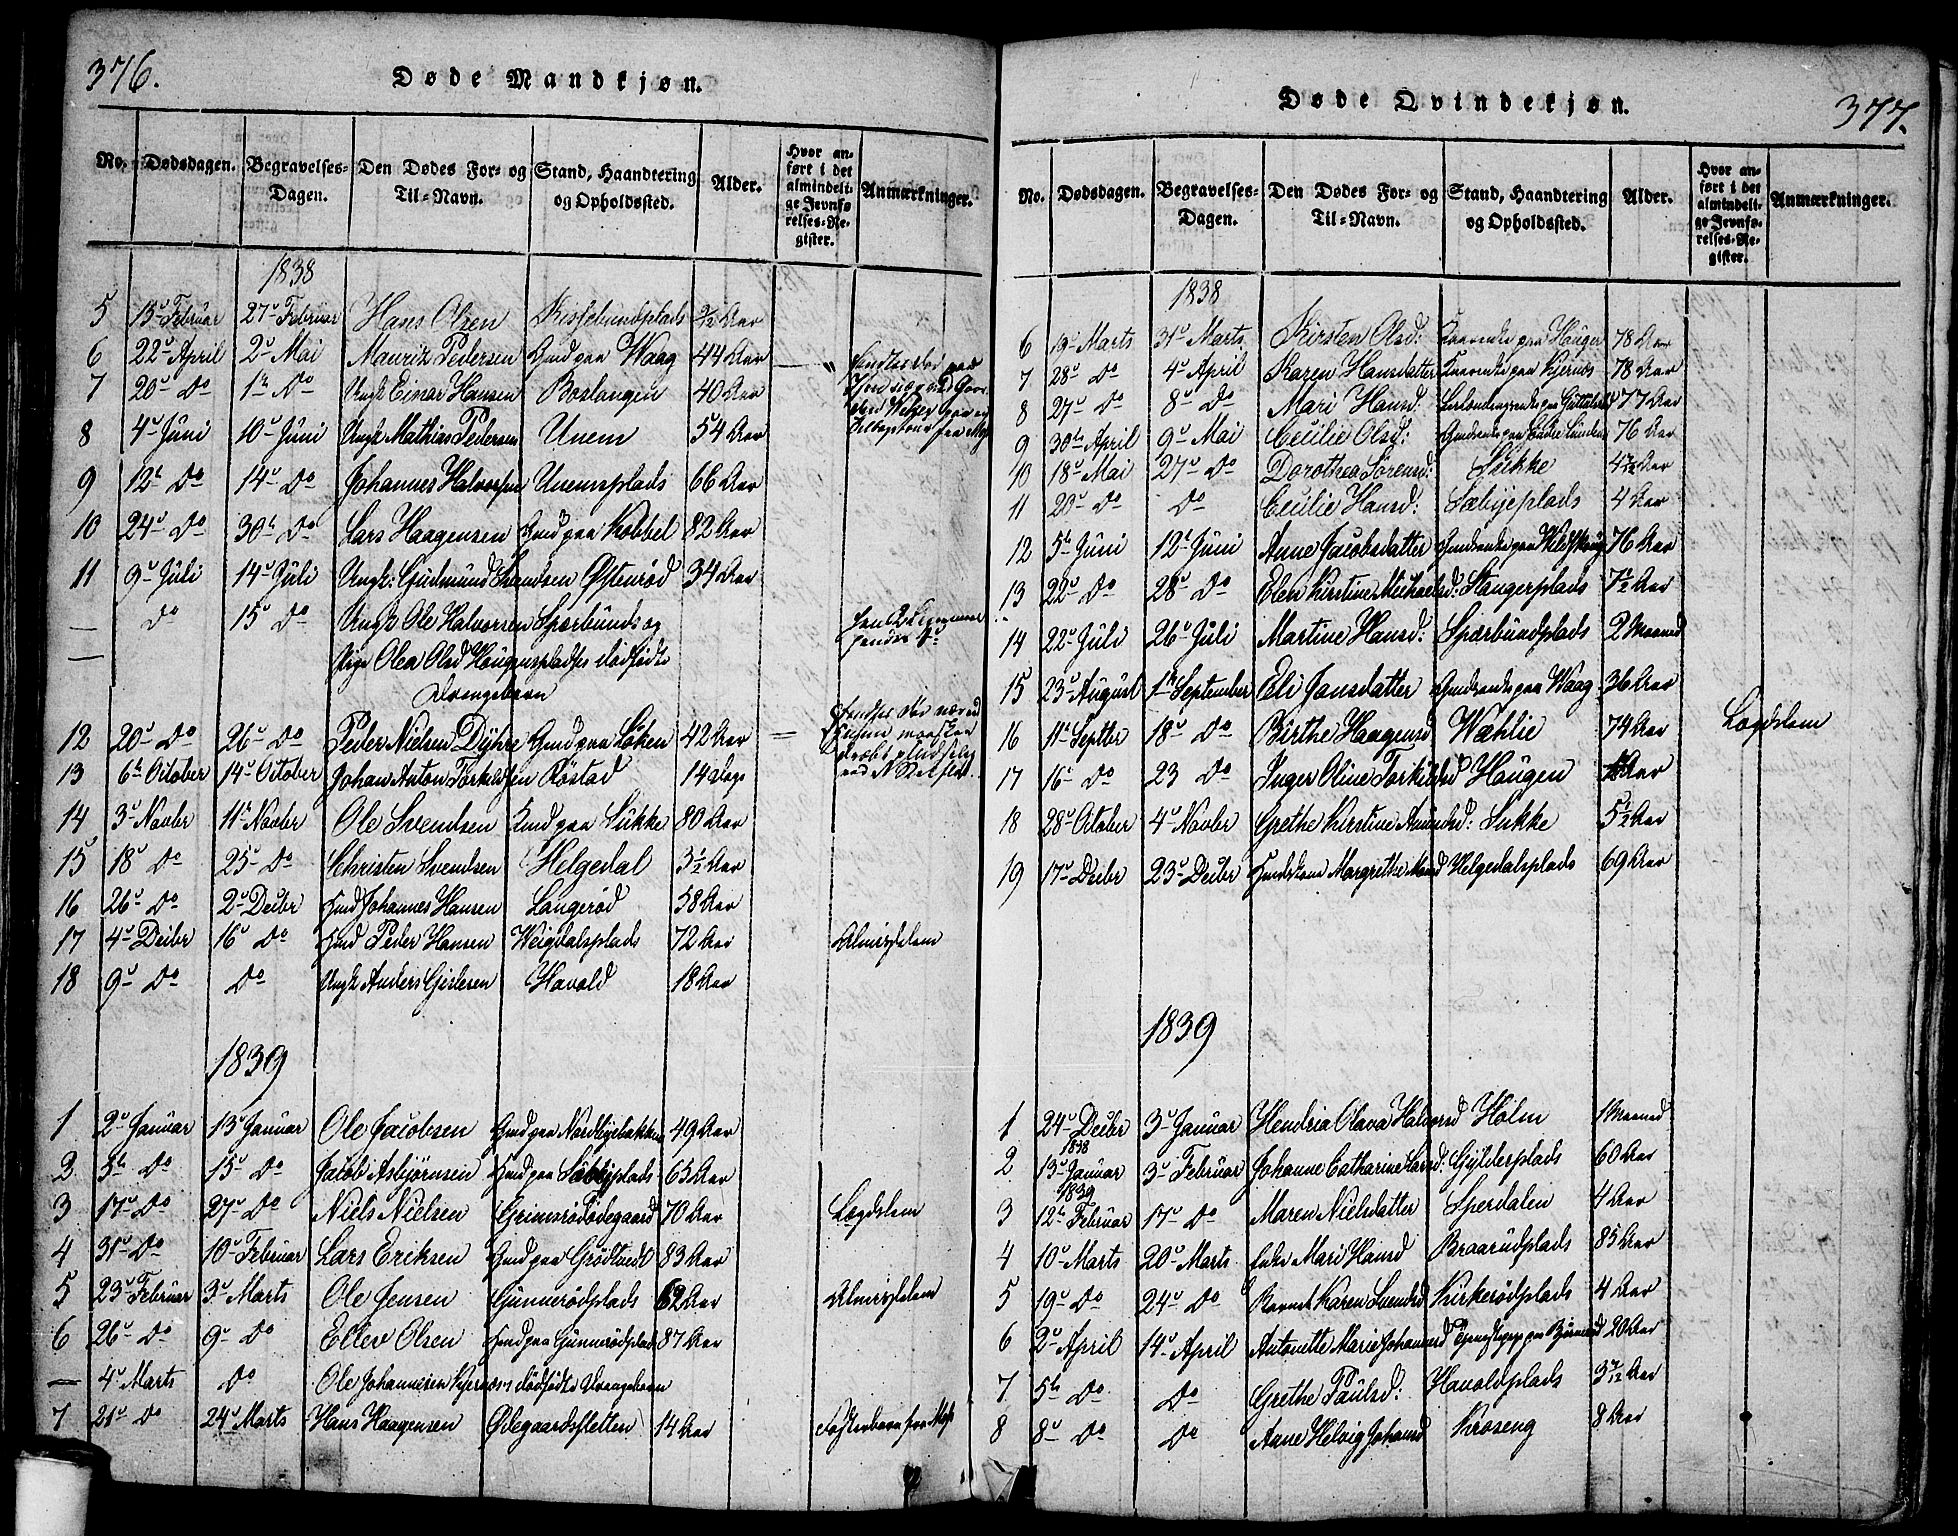 376.
Døde Mandkjøn.
No. Dødsdagen. Begravelses-Dagen. Den Dødes For- og Til-Navn. Stand, Haandtering og Opholdssted. Alder. Hvor anført i det almindelige Jevnførelses-Register. Anmærkninger.
1838
5 15 Februar 27 Februar Hans Olsen Aar
6 22 April 2 Mai Mauritz Pedersen Gmd paa Waag 44 Aar
7 20 Do 1te Do Ungk Einar Hansen Boslangen 40 Aar
8 4 Juni 10 Juni Ungk Mathias Pedersen Unem 54 Aar
9 12 Do 14 Do Johannes Halvorsen Unemsplads 66 Aar
10 24 Do 30 Do Lars Haagensen Gmd paa Kobbel 82 Aar
11 9 Juli 14 Juli Ungk: Gudmund Svendsen Østenrød 34 Aar
— Do 15 Do Ungk Ole Halvorsen Spærbunds og
— Pige Olea Olsd Haugenspladses dødfødte
Drengebarn
12 20 Do 26 Do Peder Nielsen Dyhre Gmd paa Løken 42 Aar
13 6 October 14 October Johan Anton Torkelsen Røstad 14 dage
14 3 Novbr 11 Novbr Ole Svendsen Hmd paa Sukke 80 Aar
15 18 Do 25 Do Christen Svendsen Helgedal 3½ Aar
16 26 Do 2 Decbr Hmd Johannes Hansen Langerød 58 Aar
17 4 Decbr 16 Do Hmd Peder Hansen Weigdalsplads 72 Aar Almisselem
18 9 Do Do Ungk Anders Gislesen Havold 18 Aar
1839
1 2 Januar 13 Januar Ole Jacobsen Gmd paa Nordbyebakken 49 Aar
2 5 Do 15 Do Jacob Asbjørnsen Hmd paa Sæbyplads 65 Aar
3 17 Do 27 Do Niels Nielsen Grimsrødødegaard 70 Aar Lægdslem
4 31 Do 10 Februar Lars Eriksen Gmd paa Grødtvedt 83 Aar
5 23 Februar 3 Marts Ole Jensen Gunnerødplads 62 Aar Almisselem
6 26 Do 9 Do Ellev Olsen Hmd paa Gunnerødplads 87 Aar
— 4 Marts Do Ole Johannesen Kjernæs dødfødte Drengebarn
7 21 Do 24 Marts Hans Haagensen Ødegaardsletten 14 Aar Fosterbarn fra Moss
377.
Døde Qvindekjøn.
No. Dødsdagen. Begravelses-Dagen. Den Dødes For- og Til-Navn. Stand, Haandtering og Opholdssted. Alder. Hvor anført i det almindelige Jevnførelses-Register. Anmærkninger.
1838
6 19 Marts 31 Marts Kirsten Olsd: paa Hauger 78 Aar
7 28 Do 4 April Karen Hansdatter paa Kjernæs 78 Aar
8 27 Do 8 Do Mari Hansd: 77 Aar
9 30 April 9 Mai Cecilie Olsd: 76 Aar
10 18 Mai 27 Do Dorothea Sørensd: Sukke Aar
11 20 Do Do Cecilie Hansd: Sæbyeplads 4 Aar
12 5 Juni 12 Juni Anne Jacobsdatter 76 Aar
13 22 Do 28 Do Elen Kirstine Michaelsd: Stangerplads 7½ Aar
14 22 Juli 26 Juli Martine Hansd: Spærbundplads 2 Maaned
15 23 August 1te September Eli Jonsdatter paa Waag 36 Aar
16 11 Septbr 18 Do Birthe Haagensd Wæhlie 74 Aar Lægdslem
17 16 Do 23 Do Inger Oline Torkildsd Haugen Aar
18 28 October 4 Novbr Grethe Kirstine Amundsd: Sukke 5½ Aar
19 17 Decbr 23 Decbr Margrethe Helgedalsplads 69 Aar
1839
1 24 Decbr 1838 3 Januar Hendria Olava Halvorsd Holm 1 Maaned
2 13 Januar 1839 3 Februar Johanne Catharine Larsd: Gylderplads 60 Aar
3 12 Februar 17 Do Maren Nielsdatter Sperdalen 4 Aar
4 10 Marts 20 Marts Enke Mari Hansd Braarudplads 85 Aar
5 19 Do 24 Do Karen Svendsd Kirkerødplads 4 Aar
6 2 April 14 April Antonette Marie Johannesd 20 Aar
7 5 Do Do Grethe Paulsd: Havoldplads Aar
8 8 Do Do Anne Helvig Johansd Krøseng 8 Aar